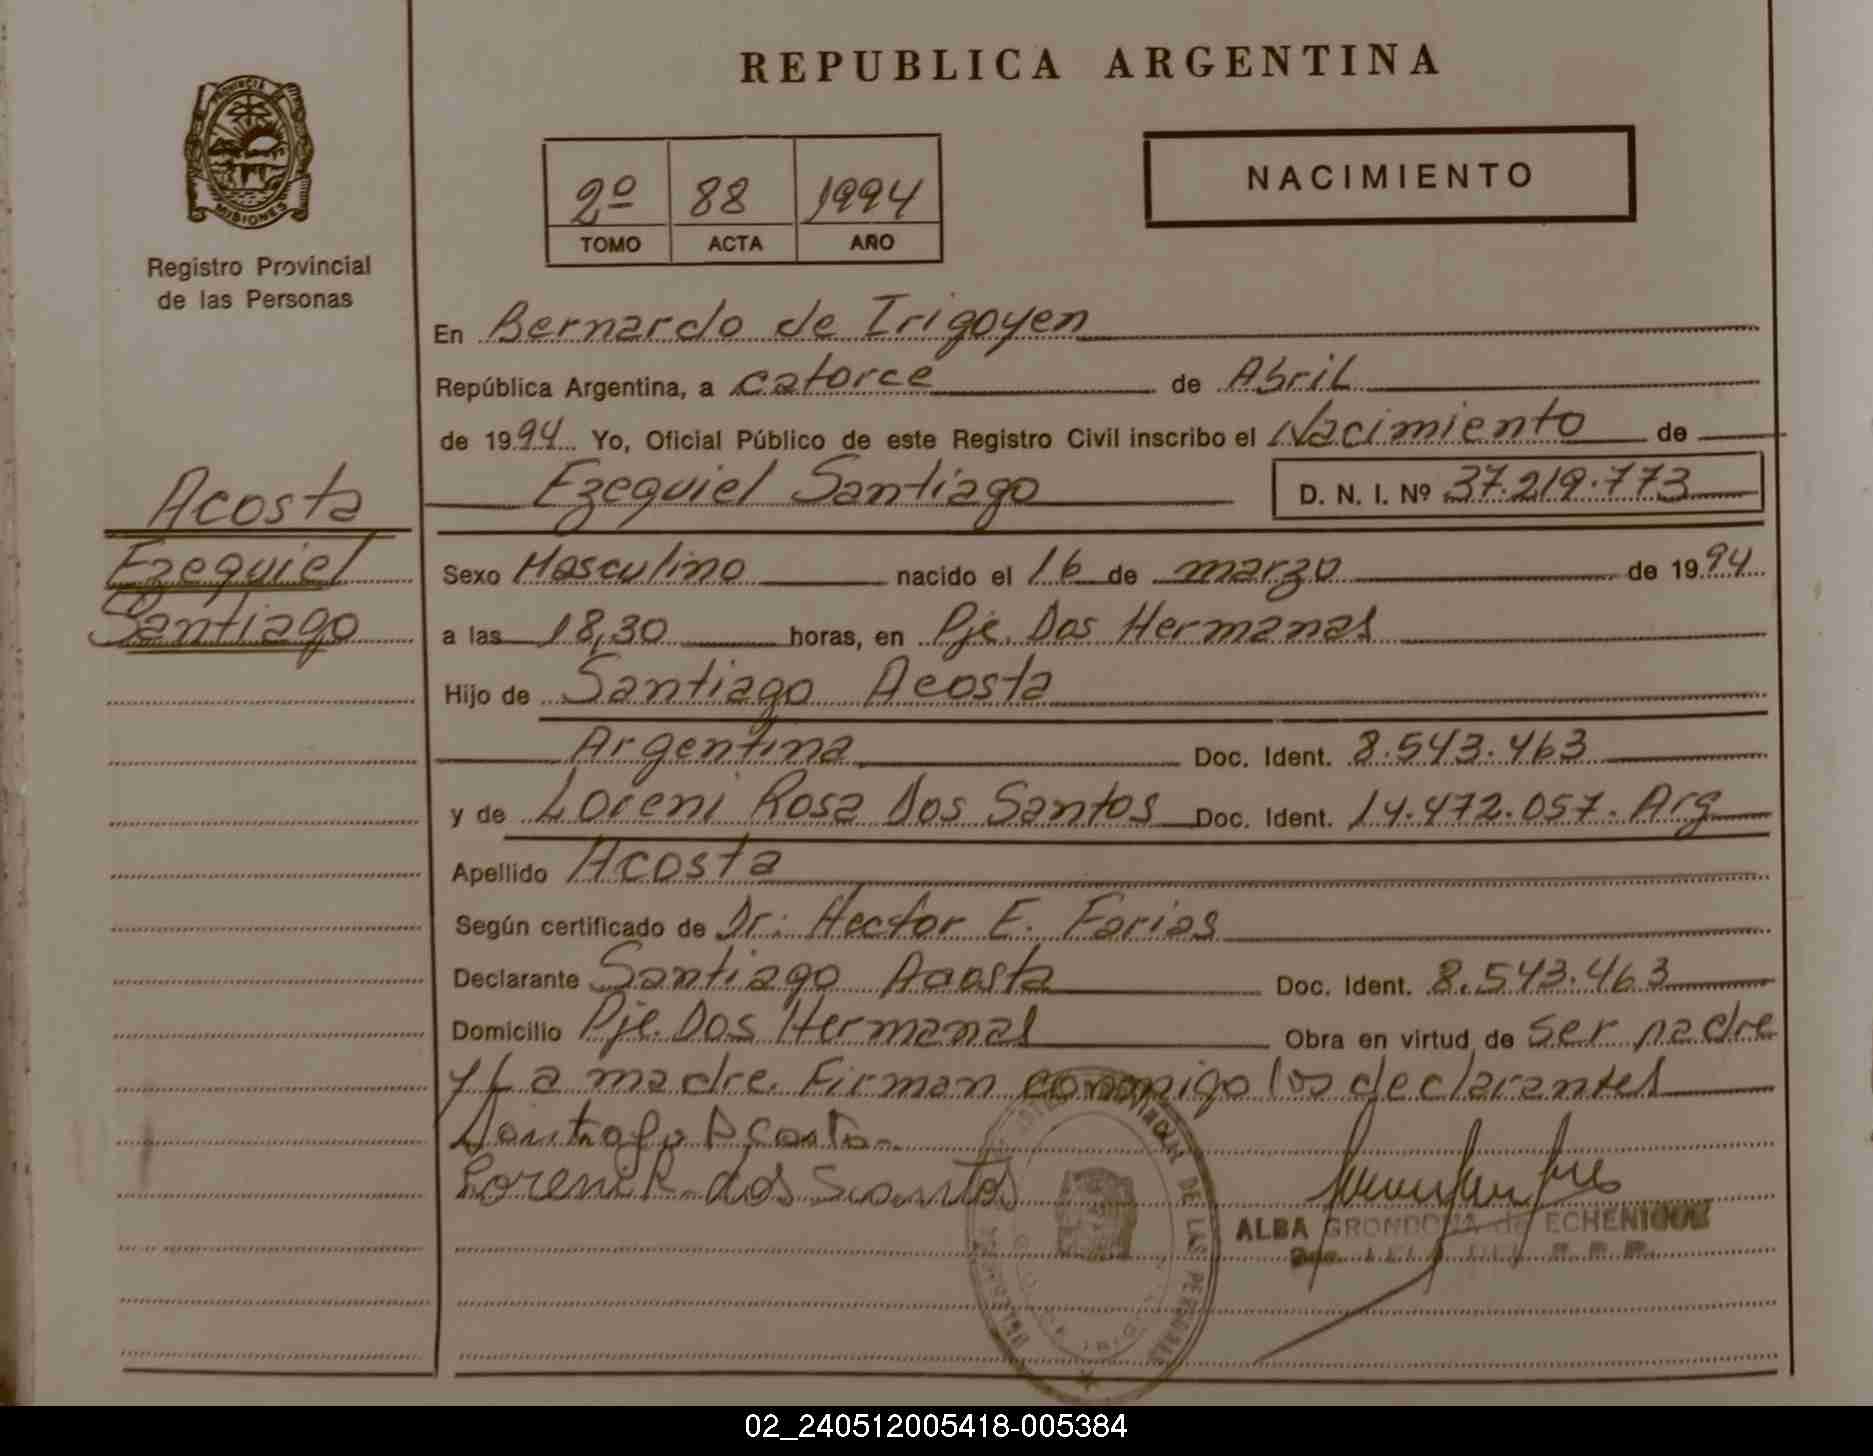 REPUBLICA ARGENTINA
PROVINCIA
MISIONES
Registro Provincial
de las Personas
2º 88 1994
TOMO ACTA AÑO
NACIMIENTO
En Bernardo de Irigoyen
República Argentina, a catorce de Abril
de 1994 Yo, Oficial Público de este Registro Civil inscribo el Nacimiento de
Ezequiel Santiago D. N. I. Nº 37.219.773
Acosta
Ezequiel
Santiago
Sexo Masculino nacido el 16 de marzo de 1994
a las 18,30 horas, en Pje. Dos Hermanas
Hijo de Santiago Acosta
Argentina Doc. Ident. 8.543.463
y de Loreni Rosa Dos Santos Doc. Ident. 14.472.057. Arg
Apellido Acosta
Según certificado de Dr: Hector E. Farias
Declarante Santiago Acosta Doc. Ident. 8.543.463
Domicilio Pje. Dos Hermanas Obra en virtud de ser padre
y La madre. Firman conmigo los declarantes
Santiago Acosta
Loreni R. dos Santos
ALBA GRONDONA de ECHENIQUE
DE LAS PERSONAS
02_240512005418-005384